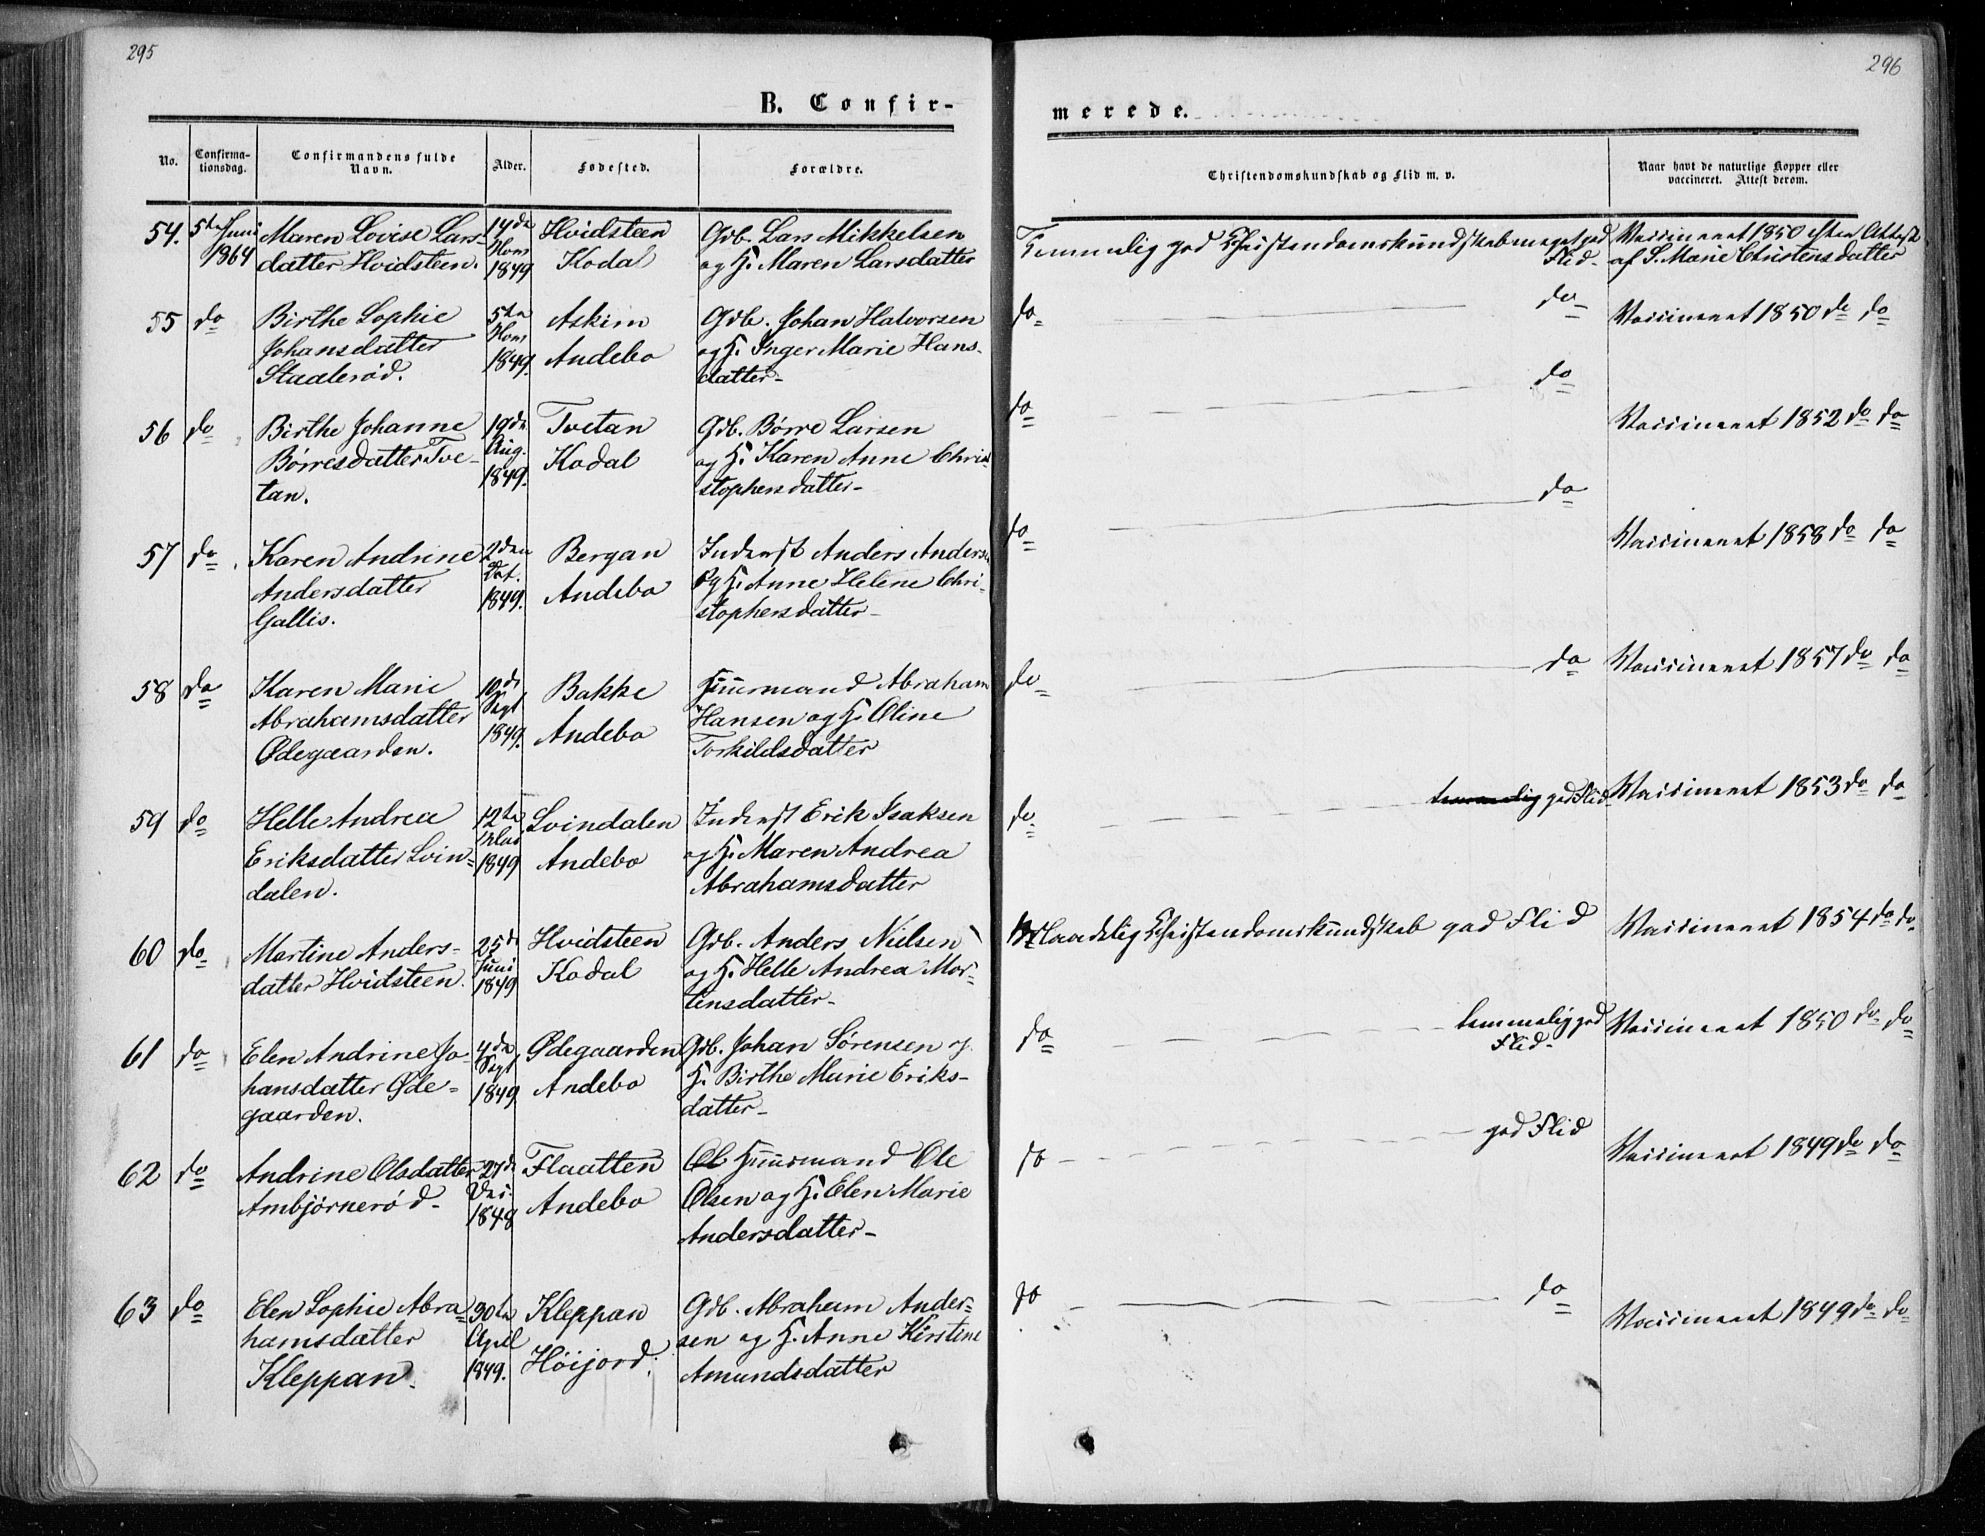 295
296
B. Confir-
merede.
No.
Confirma-
tionsdag.
Confirmandens fulde
Navn.
Alder.
Fødested.
Forældre.
Christendomskundskab og Flid m. v.
Naar havt de naturlige Kopper eller
vaccineret. Attest derom.
54. 5te Juni Maren Lovise Lars- 14de Hvidsteen Gdb. Lars Mikkelsen
1864 datter Hvidsteen. 1849 Kodal og H. Maren Larsdatter
Temmelig god Christendomskundskab meget god
Flid.
Vaccineret 1850 efter Attest
af S. Marie Christensdatter
55 do Birthe Sophie 5te Askim Gdb. Johan Halvorsen
Johansdatter Andebo og H. Inger Marie Hans-
Staalerød. 1849. datter-
do do
Vaccineret 1850 do do
56 do Birthe Johanne 19de Tvetan Gdb. Børre Larsen
Børresdatter Tve- Aug. Kodal og H. Karen Anne Chri-
tan. 1849. stophersdatter-
do do
Vaccineret 1852 do do
57 do Karen Andrine 2den Bergan Inderst Anders Anders
Andersdatter Andebo og H. Anne Helene Chri-
Gallis. 1849. stophersdatter-
do do
Vaccineret 1858 do do
58 do Karen Marie 10de Bakke Huusmand Abraham
Abrahamsdatter Sept Andebo Hansen og H. Oline
Ødegaarden. 1849. Torkildsdatter
do do
Vaccineret 1857 do do
59 do Helle Andrea 12te Svindalen Inderst Erik Isaksen
Eriksdatter Svin- 1849 Andebo og H. Maren Andrea
dalen. Abrahamsdatter
do temmelig god Flid
Vaccineret 1853 do do
60 do Martine Anders- 25de Hvidsteen Gdb. Anders Nielsen
datter Hvidsteen. Juni 1849 Kodal og H. Helle Andrea Mor-
tinsdatter-
Maadelig Christendomskundskab god Flid
Vaccineret 1854 do do
61 do Elen Andrine Jo- 4de Ødegaarden Gdb. Johan Sørensen og
hansdatter Øde- Sept 1849 Andebo H. Birthe Marie Eriks-
gaarden. datter-
do temmelig god
Flid-
Vaccineret 1850 do do
62 do Andrine Olsdatter 27de Flaatten Ol Huusmand Ole
Ambjørnerød- 1848 Andebo Olsen og H. Elen Marie
Andersdatter-
do god Flid
Vaccineret 1849 do do
63 do Elen Sophie Abra- 30te Kleppan Gdb. Abraham Ander-
hamsdatter April Høijord. sen og H. Anne Kirstine
Kleppan. 1849. Amundsdatter
do do
Vaccineret 1849 do do